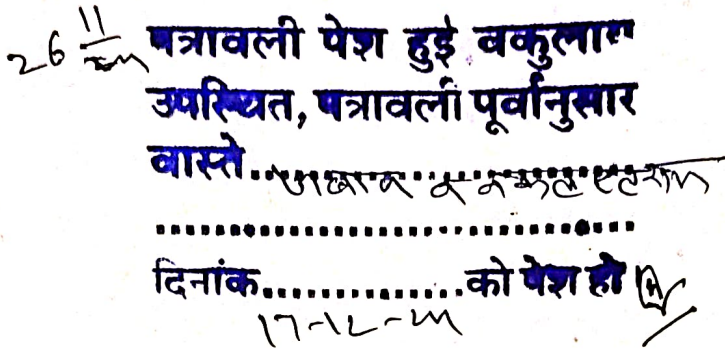 26 11 पत्रावली पेश हुई वकुलाए
उपस्थित, पत्रावली पूर्वानुसार
वास्ते
दिनांक..............को पेश हो
17-12-